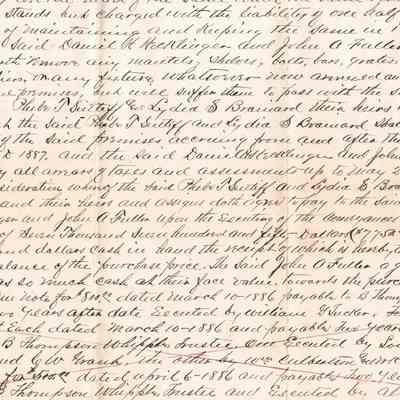 Stands but charged with the liability of one half
of maintaining and keeping the same in
Said Daniel H and John A Fuller
remove any mantels, Shelves, bolts, bars, grates
or any fixture whatsoever now annexed and
premises, and will suffer them to pass with the s
Phebe T Surtiff & Lydia S Brainard their heirs
the Said Phebe T Surtiff and Lydia S Brainard Sha
of the Said premises accruing from and after the
D 1887. and the Said Daniel H and John
all arrears of taxes and assessments up to May 2
sideration whereof the Said Phebe T Surtiff and Lydia S Bra
and their heirs and assigns doth agree to pay to the Said
ger and John A Fuller upon the Executing of the Conveyances
of Seven Thousand Seven hundred and fifty Dollars ($7750
and dollars cash in hand the receipt of which is hereby
balance of the purchase price. The Said John A Fuller a
as so much cash at their face value, towards the purc
note for $ dated March 10-1886 payable to B Thomp
two Years after date Executed by William G Tucker,
Each dated March 10-1886 and payable two Years
B Thompson Whipple Trustee One Executed by
and G W the other by Wm
for $ dated April 6-1886 and payable two Years
Thompson Whipple Trustee and Executed by Al